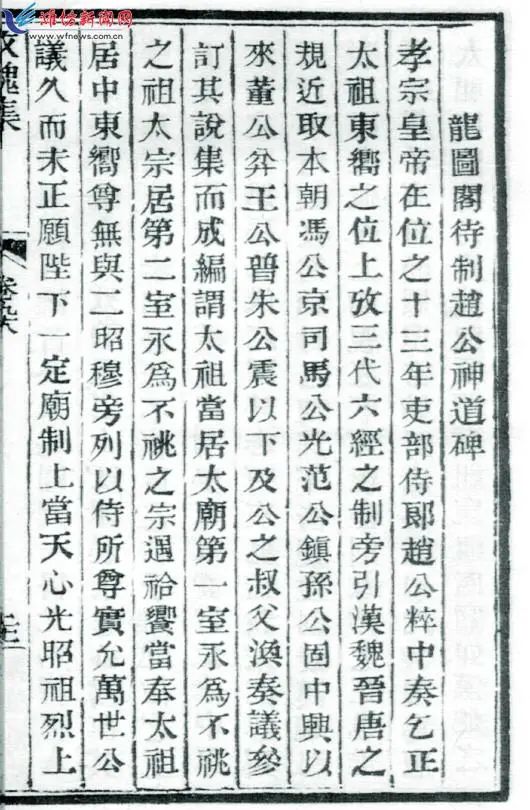 潍坊新闻网
www.wfnews.com.cn
龍圖閣待制趙公神道碑
孝宗皇帝在位之十三年吏部侍郎趙公粹中奏乞正
太祖東嚮之位上攷三代六經之制旁引漢魏晉唐之
規近取本朝馮公京司馬公光范公鎮孫公固中興以
來董公弅王公普朱公震以下及公之叔父渙奏議參
訂其說集而成編謂太祖當居太廟第一室永爲不祧
之祖太宗居第二室永爲不祧之宗遇祫饗當奉太祖
居中東嚮尊無與二昭穆旁列以侍所尊實允萬世公
議久而未正願陛下一定廟制上當天心光昭祖烈上
攻媿集